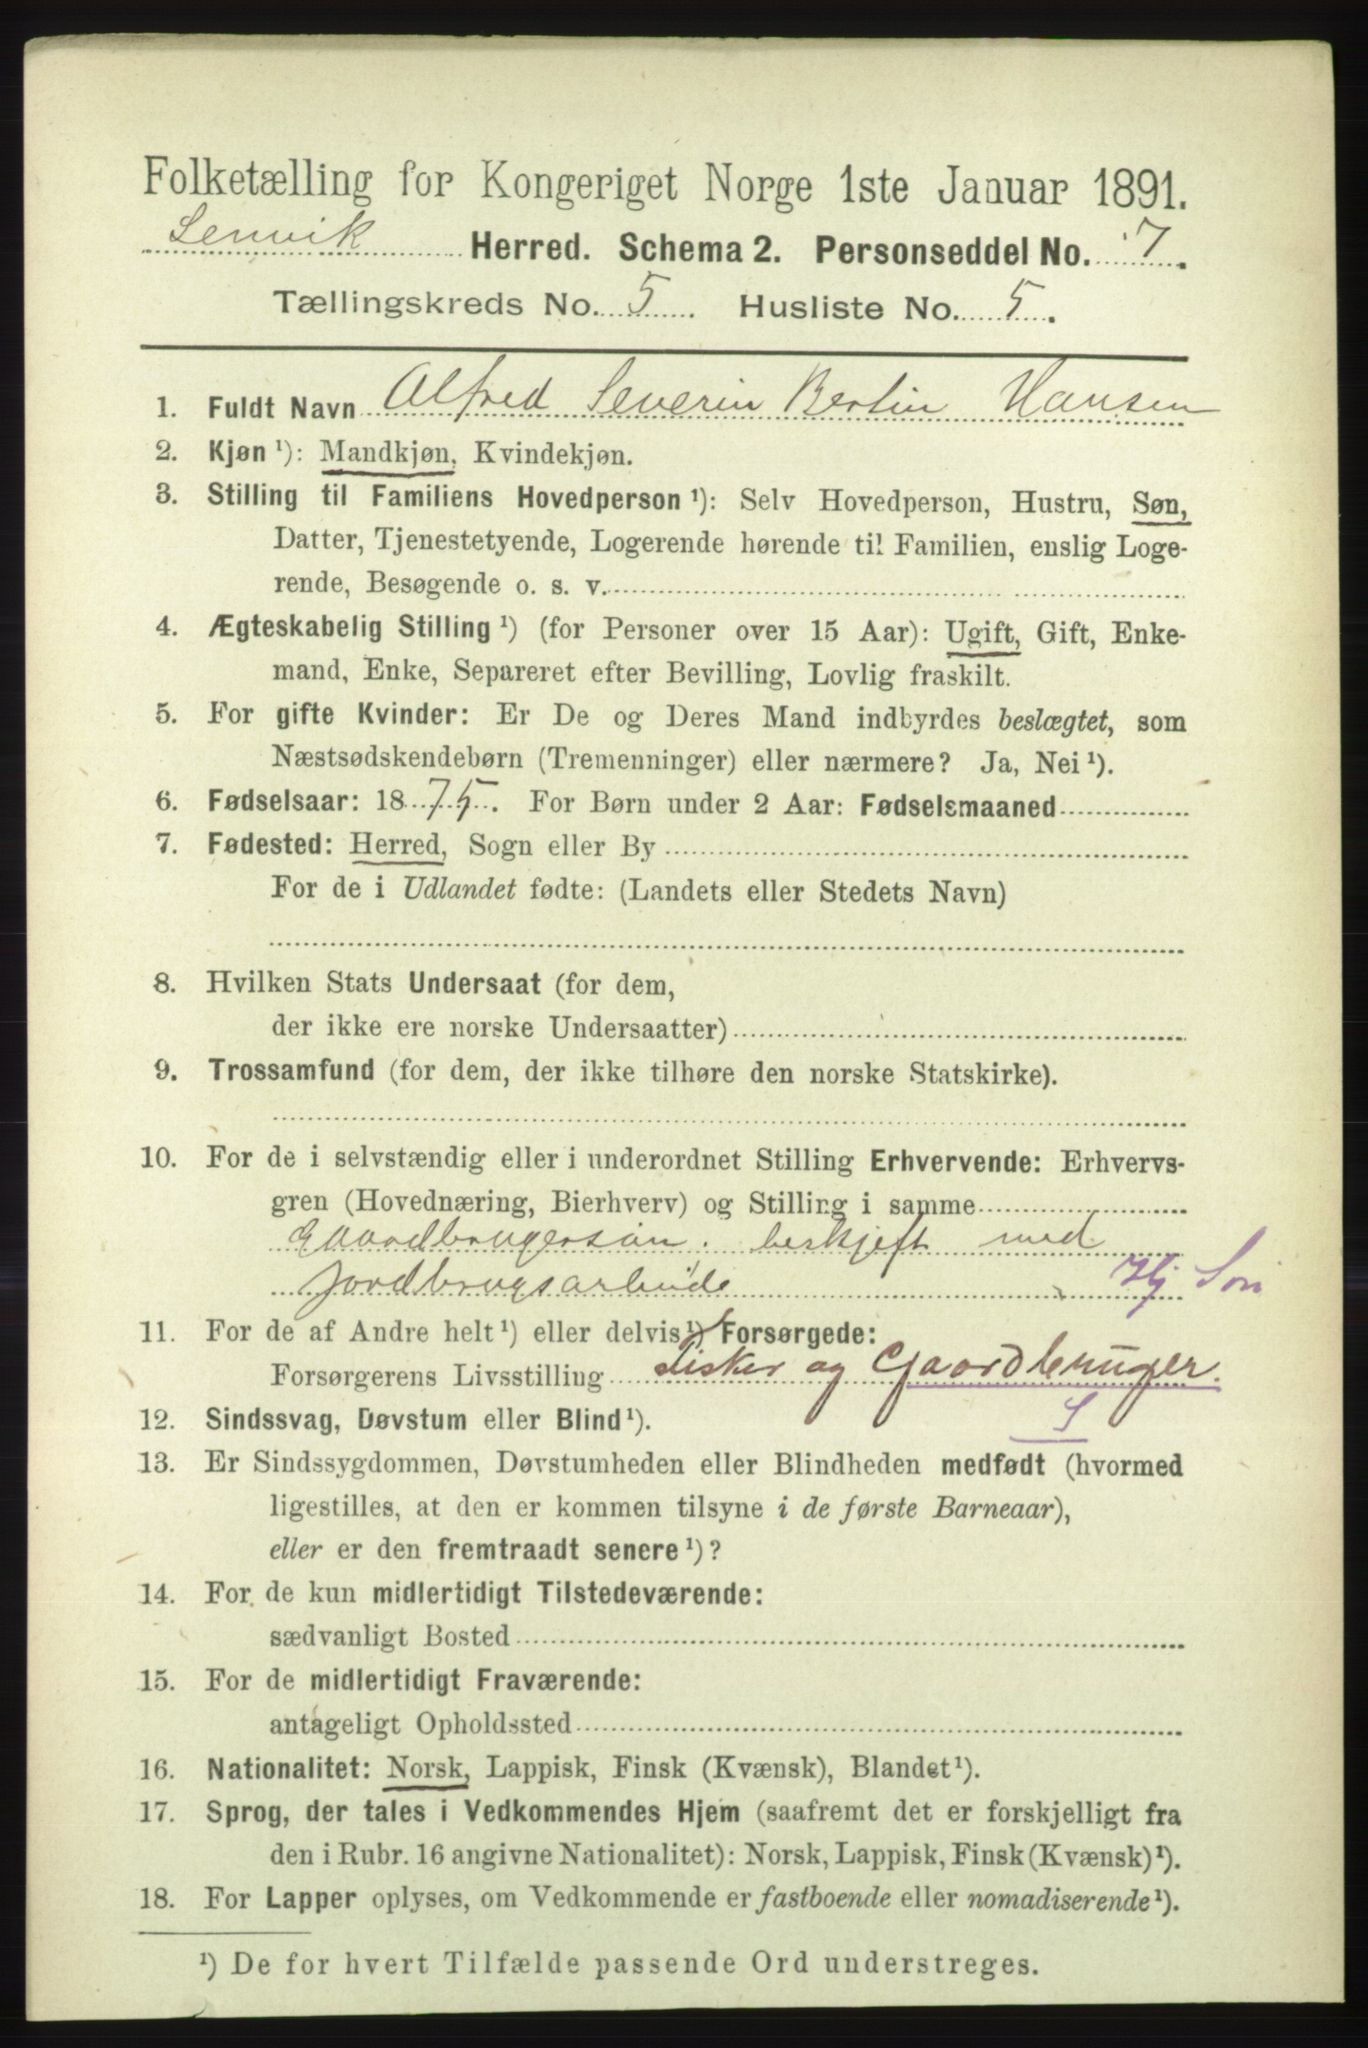 Folketælling for Kongeriget Norge 1ste Januar 1891.
Lenvik Herred. Schema 2. Personseddel No. 7.
Tællingskreds No. 5 Husliste No. 5.
1. Fuldt Navn Alfred Severin Bertin Hansen
2. Kjøn ¹): Mandkjøn, Kvindekjøn.
3. Stilling til Familiens Hovedperson ¹): Selv Hovedperson, Hustru, Søn,
Datter, Tjenestetyende, Logerende hørende til Familien, enslig Loge-
rende, Besøgende o. s. v.
4. Ægteskabelig Stilling ¹) (for Personer over 15 Aar): Ugift, Gift, Enke-
mand, Enke, Separeret efter Bevilling, Lovlig fraskilt.
5. For gifte Kvinder: Er De og Deres Mand indbyrdes beslægtet, som
Næstsødskendebørn (Tremenninger) eller nærmere? Ja, Nei ¹).
6. Fødselsaar: 1875. For Børn under 2 Aar: Fødselsmaaned
7. Fødested: Herred, Sogn eller By
For de i Udlandet fødte: (Landets eller Stedets Navn)
8. Hvilken Stats Undersaat (for dem,
der ikke ere norske Undersaatter)
9. Trossamfund (for dem, der ikke tilhøre den norske Statskirke).
10. For de i selvstændig eller i underordnet Stilling Erhvervende: Erhvervs-
gren (Hovednæring, Bierhverv) og Stilling i samme
Gaardbrugersøn. beskjeft med
jordbrugsarbeide Hj Søn
11. For de af Andre helt ¹) eller delvis ¹) Forsørgede:
Forsørgerens Livsstilling Fisker og Gaardbruger.
S
12. Sindssvag, Døvstum eller Blind ¹).
13. Er Sindssygdommen, Døvstumheden eller Blindheden medfødt (hvormed
ligestilles, at den er kommen tilsyne i de første Barneaar),
eller er den fremtraadt senere ¹)?
14. For de kun midlertidigt Tilstedeværende:
sædvanligt Bosted
15. For de midlertidigt Fraværende:
antageligt Opholdssted
16. Nationalitet: Norsk, Lappisk, Finsk (Kvænsk), Blandet ¹).
17. Sprog, der tales i Vedkommendes Hjem (saafremt det er forskjelligt fra
den i Rubr. 16 angivne Nationalitet): Norsk, Lappisk, Finsk (Kvænsk) ¹).
18. For Lapper oplyses, om Vedkommende er fastboende eller nomadiserende ¹).
¹) De for hvert Tilfælde passende Ord understreges.